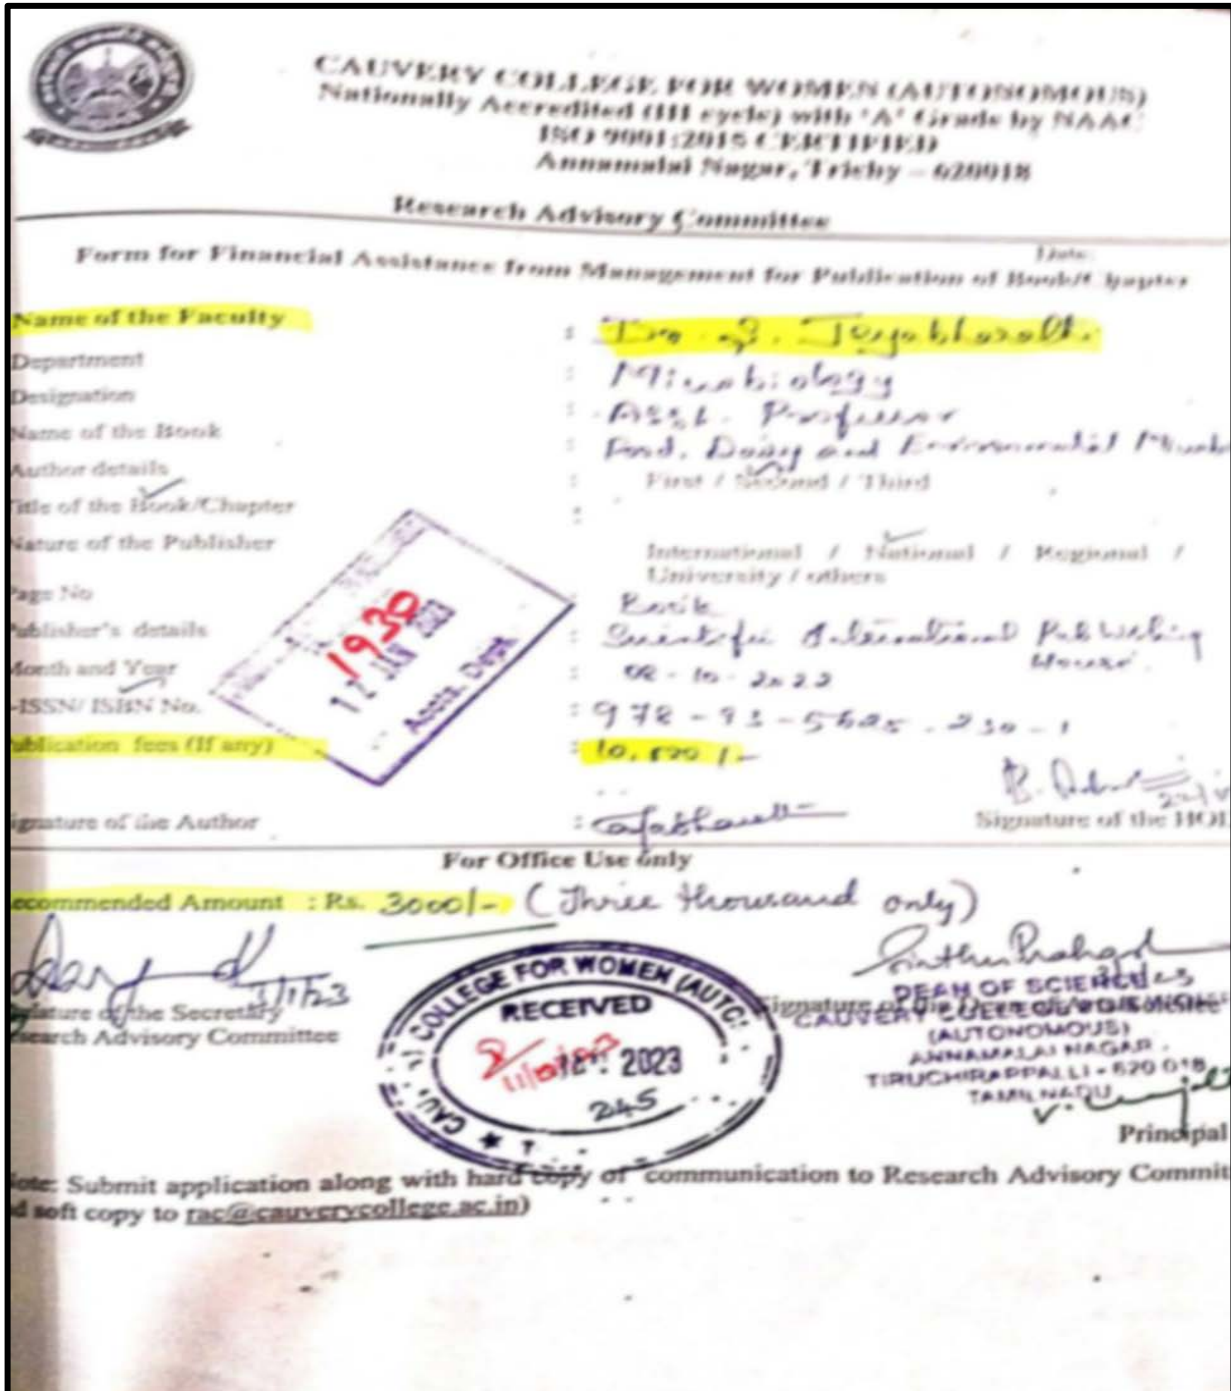 CAUVERY COLLEGE FOR WOMEN (AUTONOMOUS)
Nationally Accredited (III cycle) with 'A' Grade by NAAC
ISO 9001:2015 CERTIFIED
Annamalai Nagar, Trichy – 620018
Research Advisory Committee
Date:
Form for Financial Assistance from Management for Publication of Book/Chapter
Name of the Faculty : Jeyabharathi
Department : Microbiology
Designation : Asst. Professor
Name of the Book : Food, Dairy and Environmental
Author details : First / Second / Third
Title of the Book/Chapter :
Nature of the Publisher International / National / Regional /
University / others
Page No Book
Publisher's details : Scientific International Publishing
House.
Month and Year : 02-10-2022
-ISSN/ ISBN No. : 978-93-5625-230-1
ublication fees (If any) :
1930
12 JAN 2023
Accts. Dept
ignature of the Author :
Signature of the HO
For Office Use only
ecommended Amount : Rs. 3000/- (Three thousand only)
DEAN OF SCIENCE
Signature of the Dean of
CAUVERY COLLEGE
(AUTONOMOUS)
ANNAMALAI NAGAR,
TIRUCHIRAPPALLI - 620 018
TAMIL NADU
of the Secretary
search Advisory Committee
COLLEGE FOR WOMEN (AUTO
RECEIVED
2023
245
Principal
ote: Submit application along with hard copy of communication to Research Advisory Commit
d soft copy to rac@cauverycollege.ac.in)